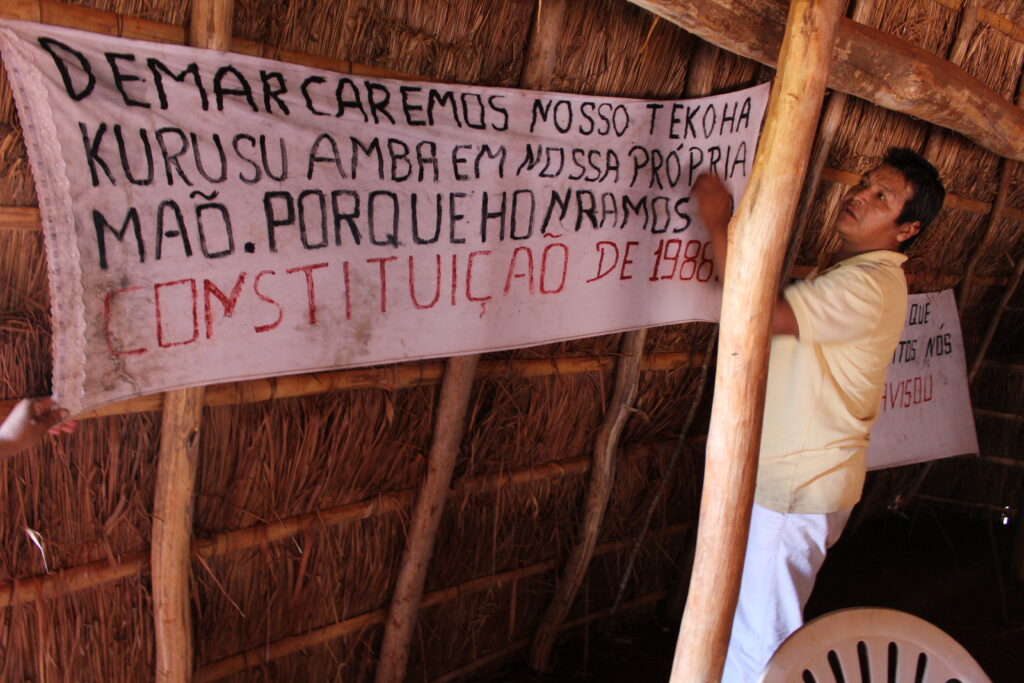 DEMARCAREMOS NOSSO TEKOHA
KURUSU AMBA EM NOSSA PRÓPRIA
MAÕ. PORQUE HONRAMOS
CONSTITUIÇAÕ DE 1988.
QUE
NÓS
AVISOU